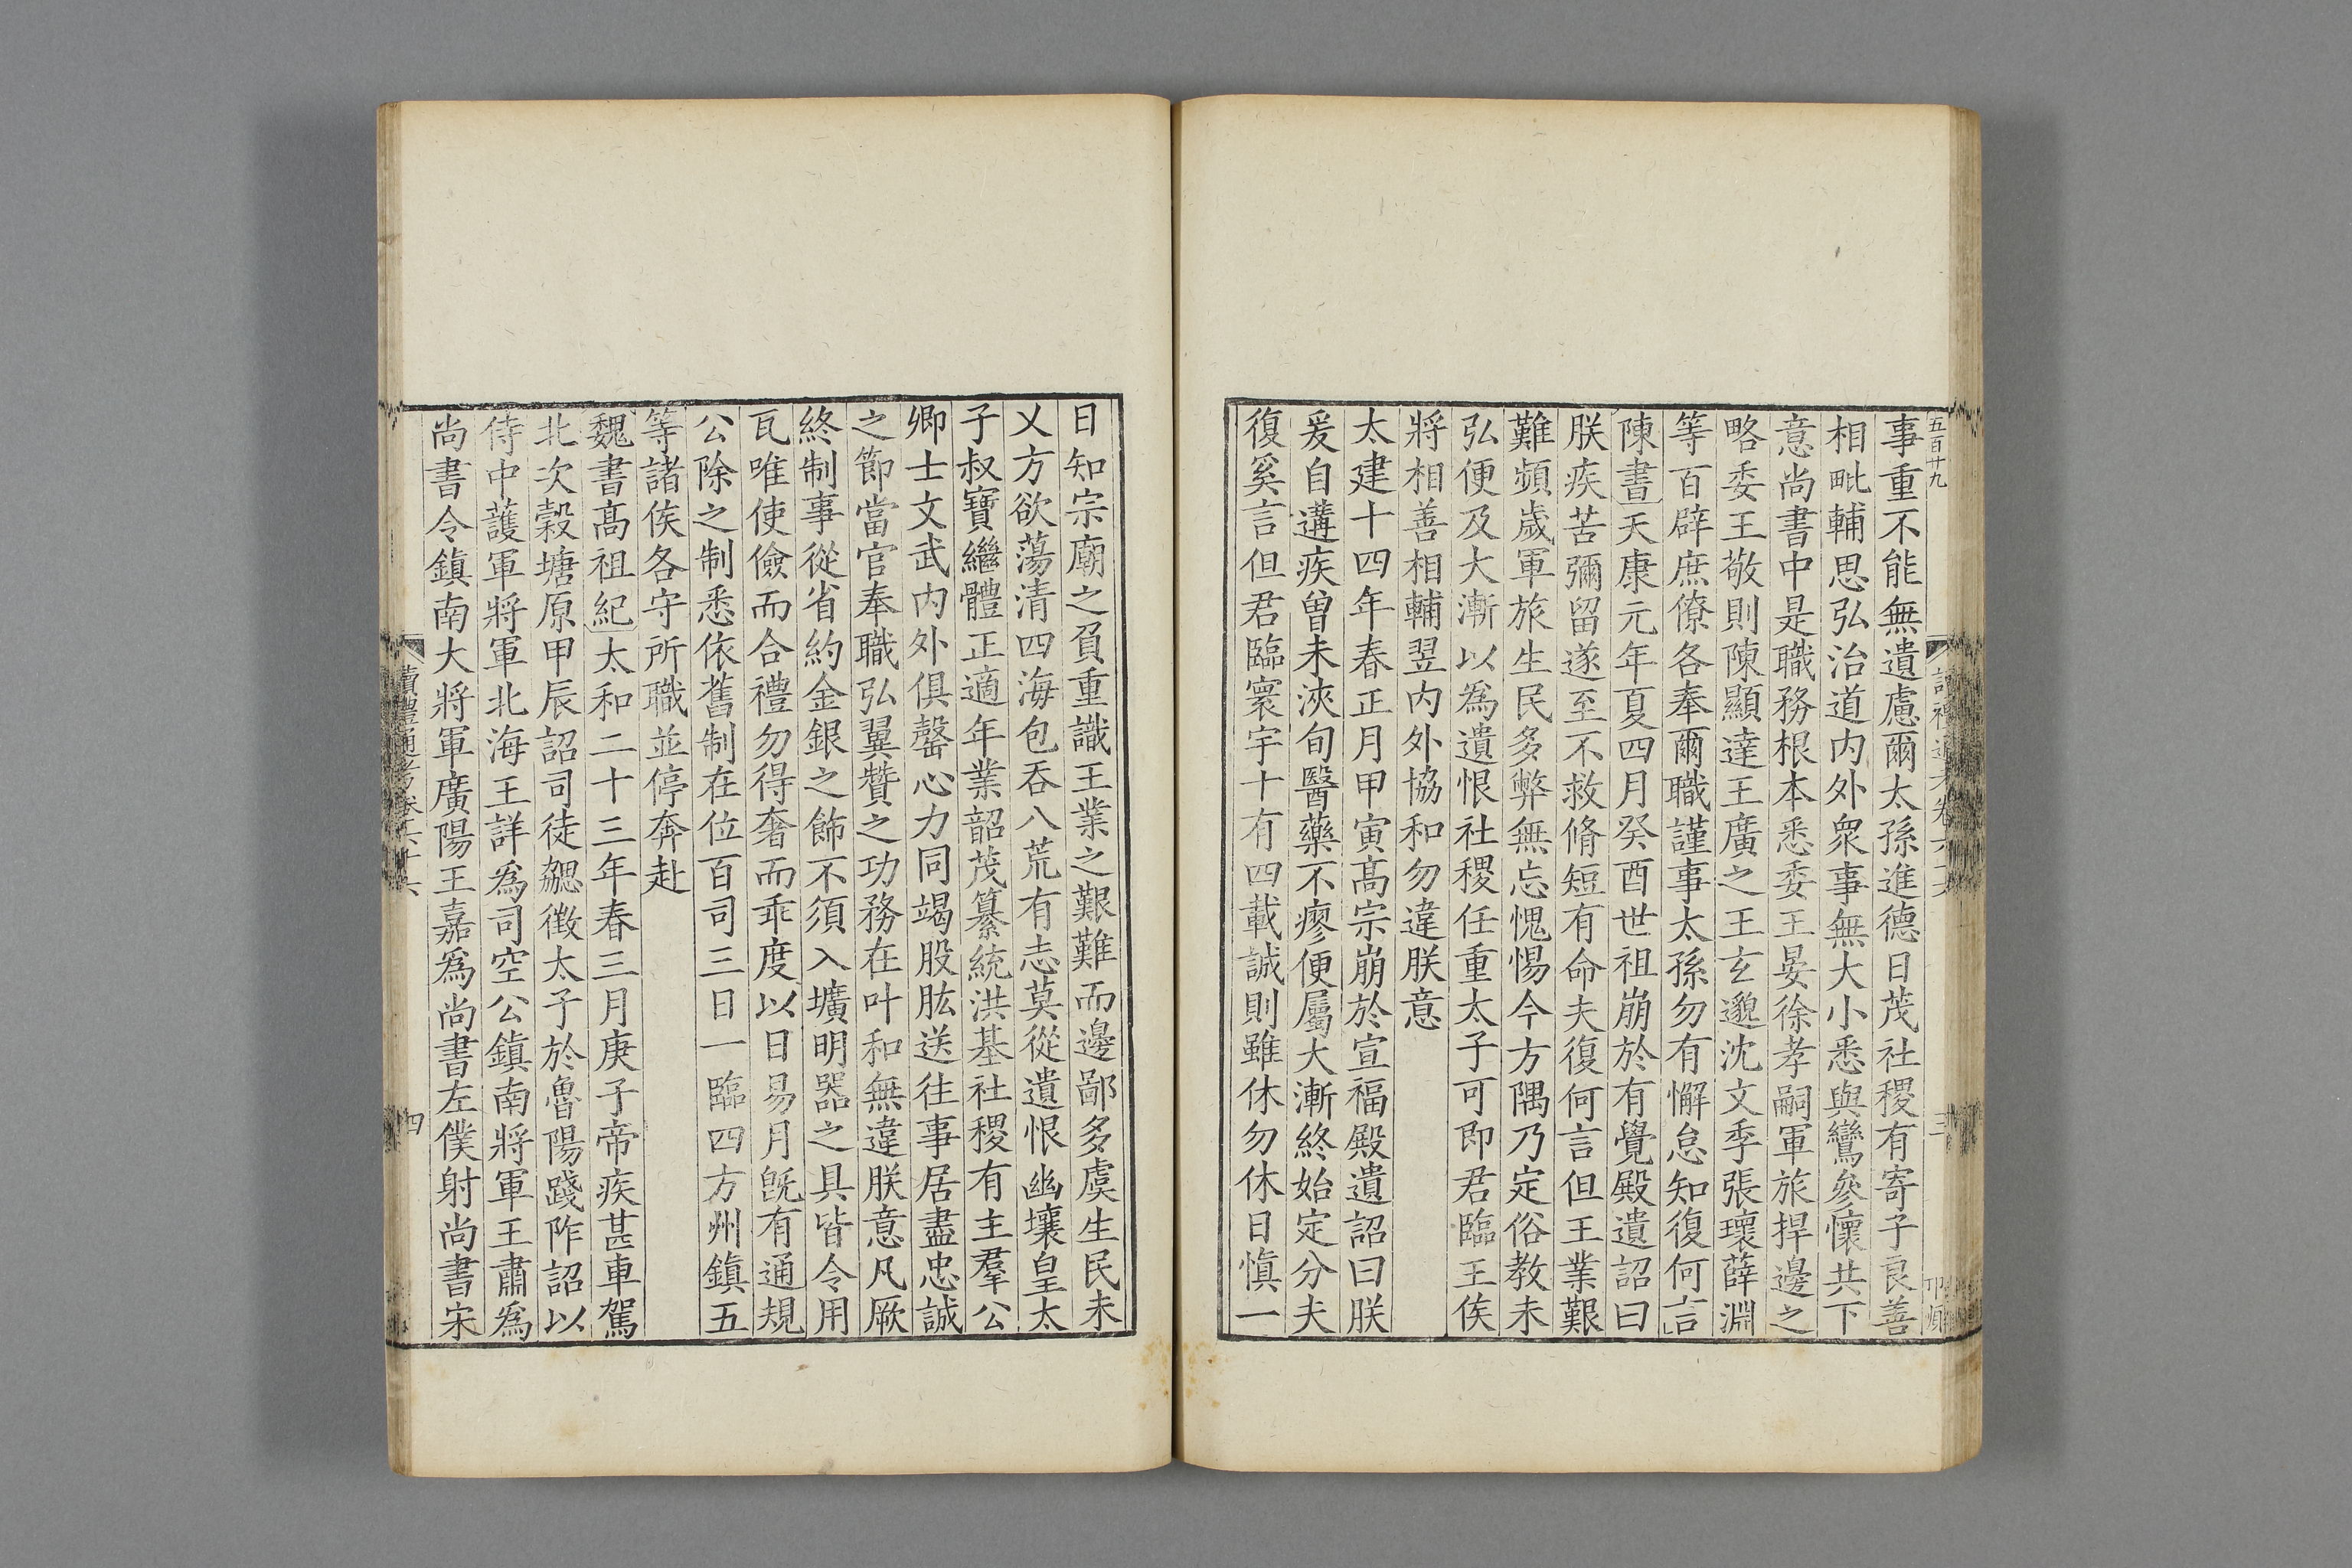 五百廿九
事重不能無遺慮爾太孫進德日茂社稷有寄子良善
相毗輔思弘治道内外衆事無大小悉與鸞參懷共下
意尚書中是職務根本悉委王晏徐孝嗣軍旅捍邊之
略委王敬則陳顯達王廣之王玄邈沈文季張瓌薛淵
等百辟庶僚各奉爾職謹事太孫勿有懈怠知復何言
陳書天康元年夏四月癸酉世祖崩於有覺殿遺詔曰
朕疾苦彌留遂至不救脩短有命夫復何言但王業艱
難頻歲軍旅生民多弊無忘愧惕今方隅乃定俗教未
弘便及大漸以為遺恨社稷任重太子可即君臨王侯
將相善相輔翌内外協和勿違朕意
太建十四年春正月甲寅高宗崩於宣福殿遺詔曰朕
爰自遘疾曾未浹旬醫藥不瘳便屬大漸終始定分夫
復奚言但君臨寰宇十有四載誠則雖休勿休日慎一
日知宗廟之負重識王業之艱難而邊鄙多虞生民未
乂方欲蕩清四海包吞八荒有志莫從遺恨幽壤皇太
子叔寶繼體正適年業韶茂纂統洪基社稷有主羣公
卿士文武内外俱罄心力同竭股肱送往事居盡忠誠
之節當官奉職弘翼贊之功務在叶和無違朕意凡厥
終制事從省約金銀之飾不須入壙明器之具皆令用
瓦唯使儉而合禮勿得奢而乖度以日易月旣有通規
公除之制悉依舊制在位百司三日一臨四方州鎮五
等諸侯各守所職並停奔赴
魏書高祖紀太和二十三年春三月庚子帝疾甚車駕
北次穀塘原甲辰詔司徒勰徴太子於魯陽踐阼詔以
侍中護軍將軍北海王詳為司空公鎮南將軍王肅為
尚書令鎮南大將軍廣陽王嘉為尚書左僕射尚書宋
讀禮通考卷六十六
四